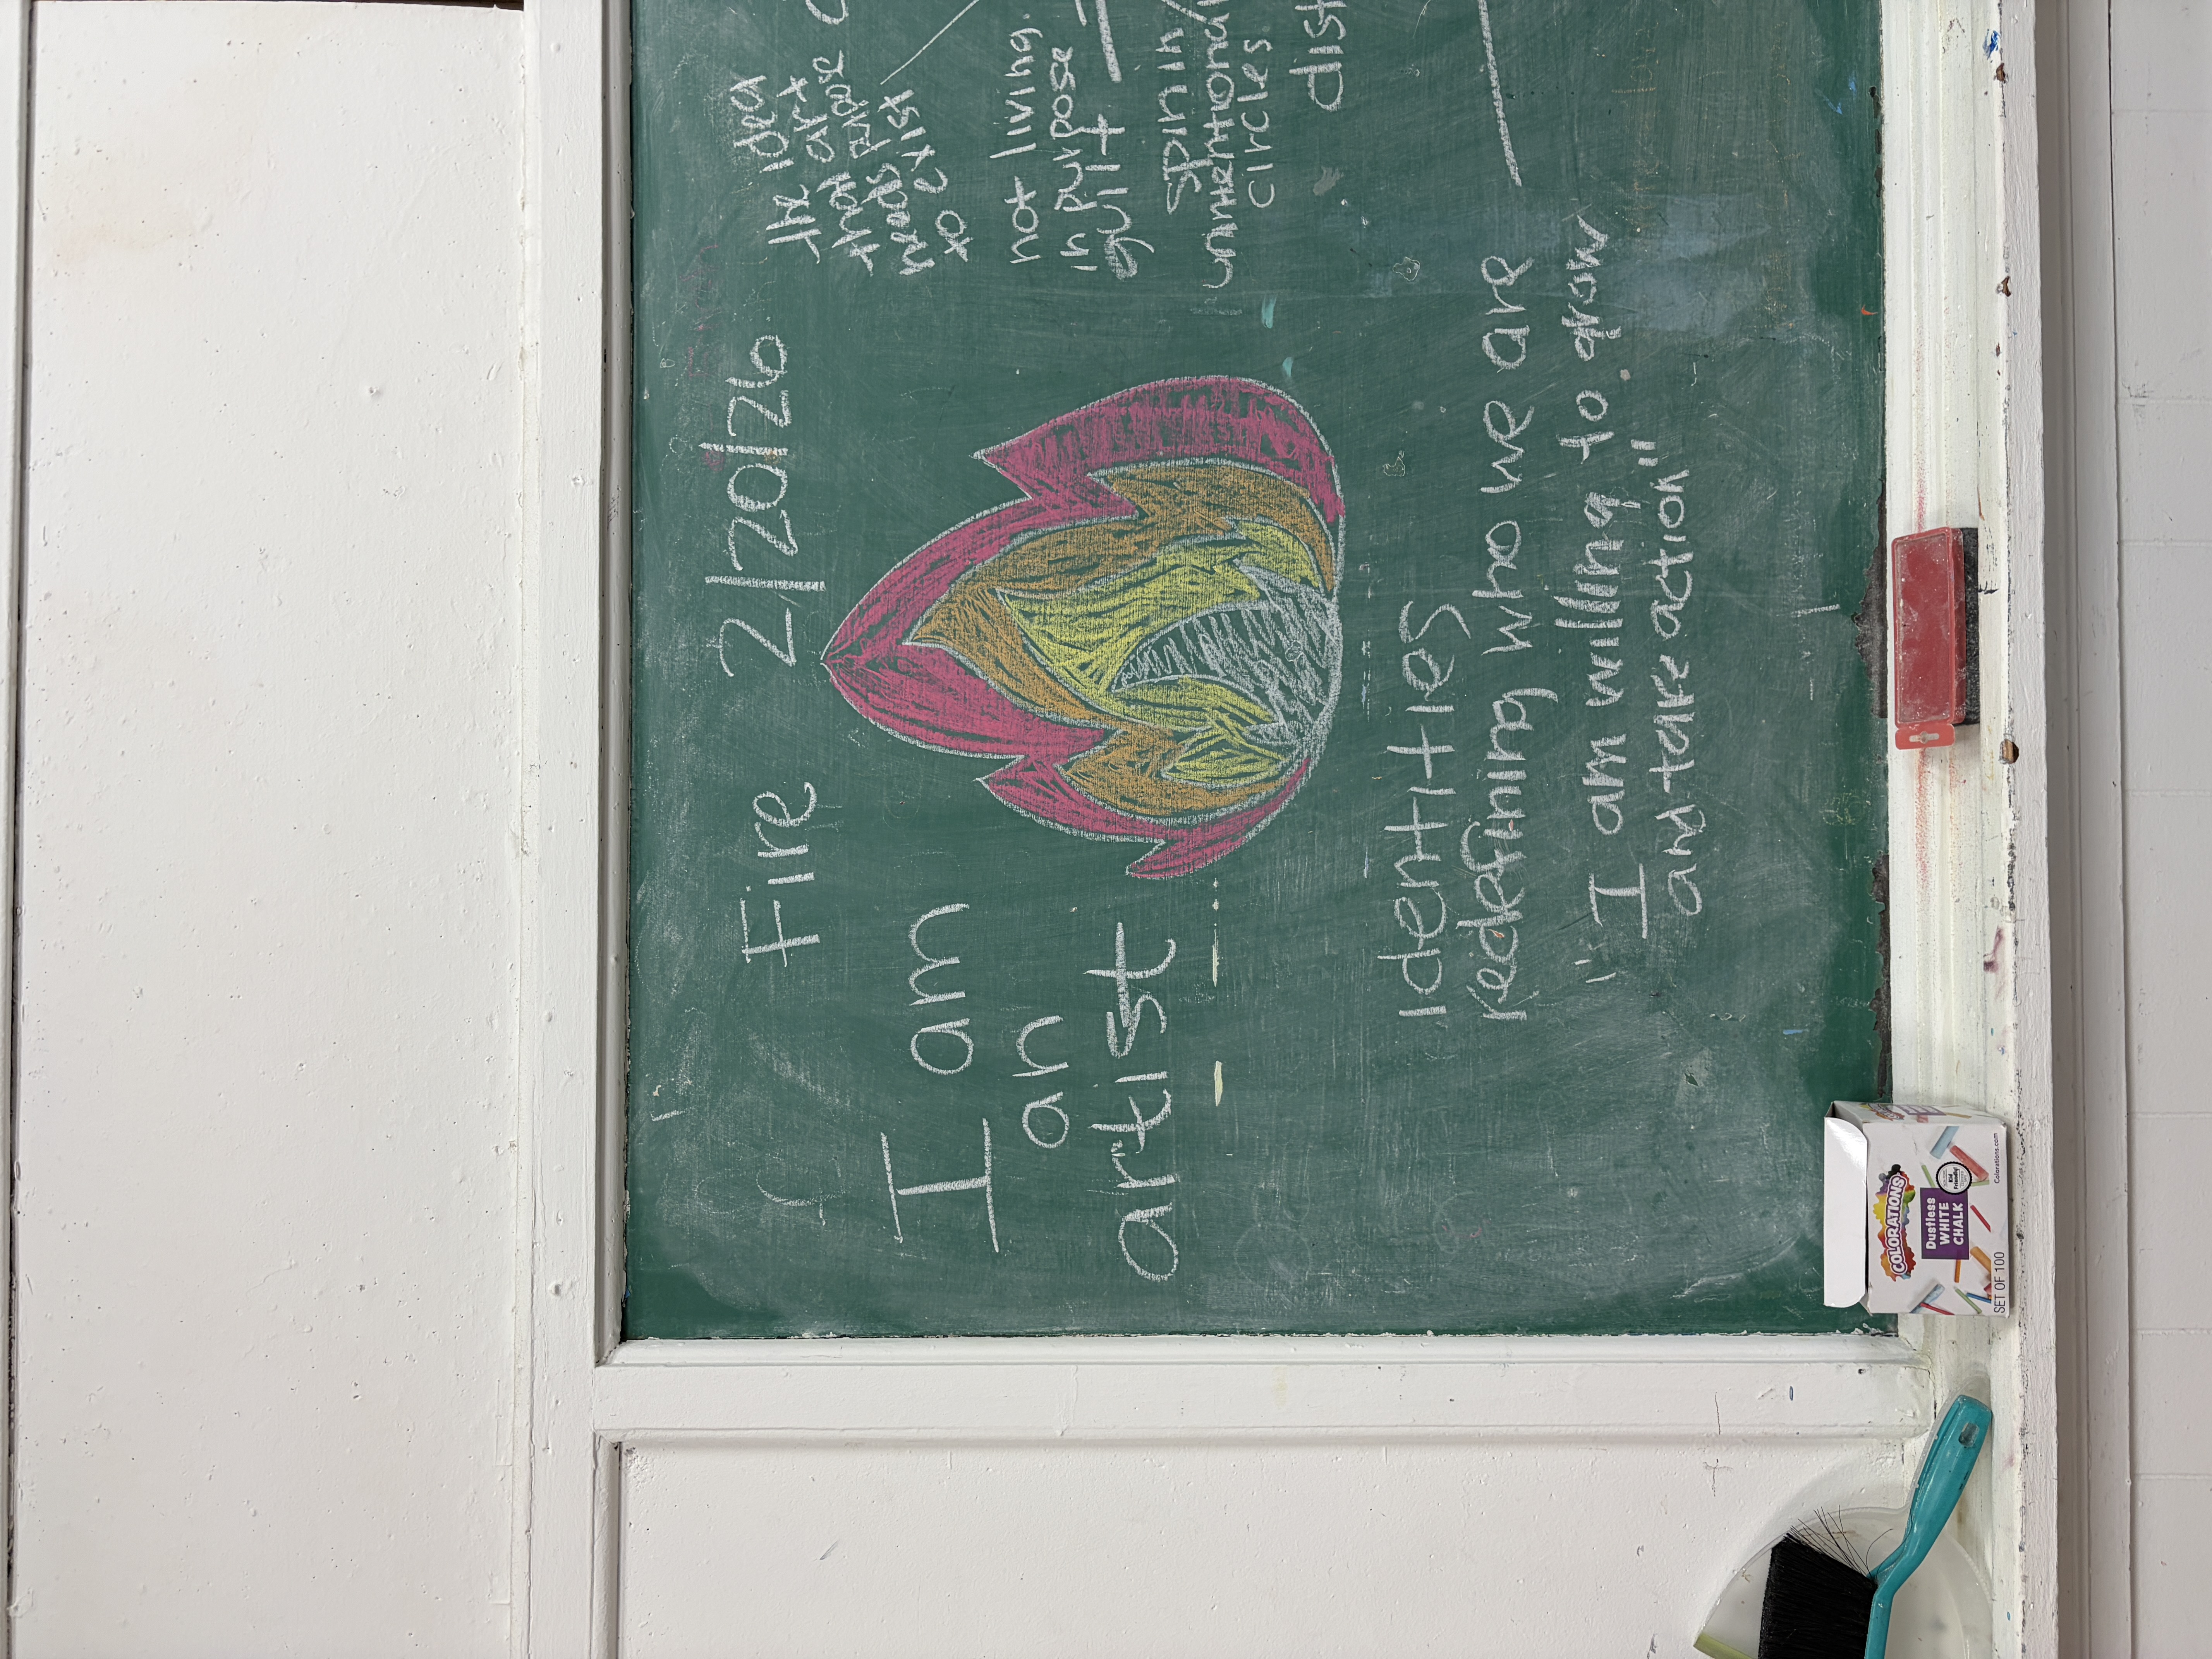 Fire 2/20/26
I am
an
artist
Identities
redefining who we are
"I am willing to grow
and take action"
the idea
that art
needs pulse
to exist
not living
in purpose
guilt
spin in
unintentional
circles
dist
COLORATIONS
Dustless
WHITE
CHALK
SET OF 100
Colorations.com